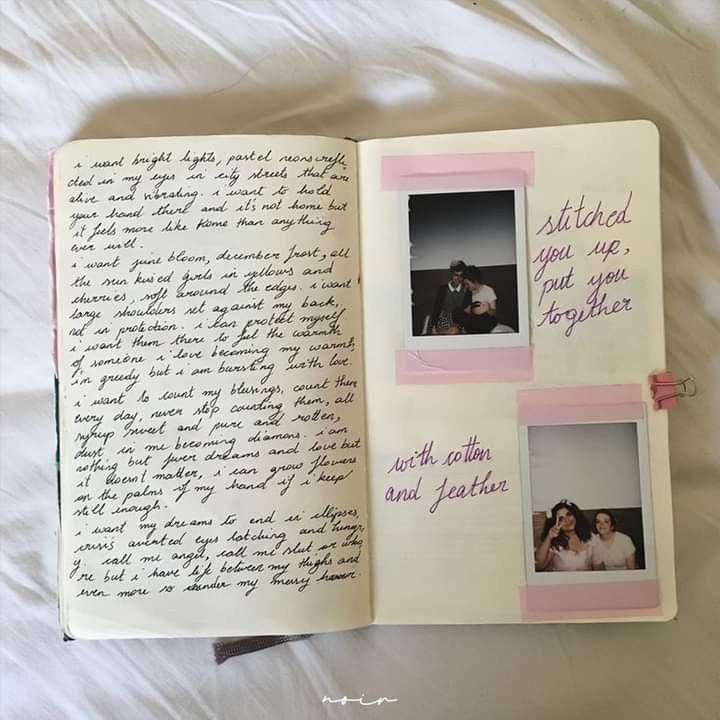 i want bright lights, pastel neons refle
cted in my eyes in city streets that are
alive and vibrating. i want to hold
your hand there and it's not home but
it feels more like home than anything
ever will.
i want june bloom, december frost, all
the sun kissed girls in yellows and
cherries, soft around the edges. i want
large shoulders set against my back,
not in protection. i can protect myself
i want them there to feel the warmth
of someone i love becoming my warmth,
i'm greedy but i am bursting with love.
i want to count my blessings, count them
every day, never stop counting them, all
syrup sweet and pure and rotten,
dust in me becoming diamons. i am
nothing but fever dreams and love but
it doesn't matter, i can grow flowers
on the palms of my hand if i keep
still enough.
i want my dreams to end in ellipses,
crisis averted eyes latching and hungr
y. call me angel, call me slut or who
re but i have life between my thighs and
even more so under my messy hair
stitched
you up,
put you
together
with cotton
and feather
noir